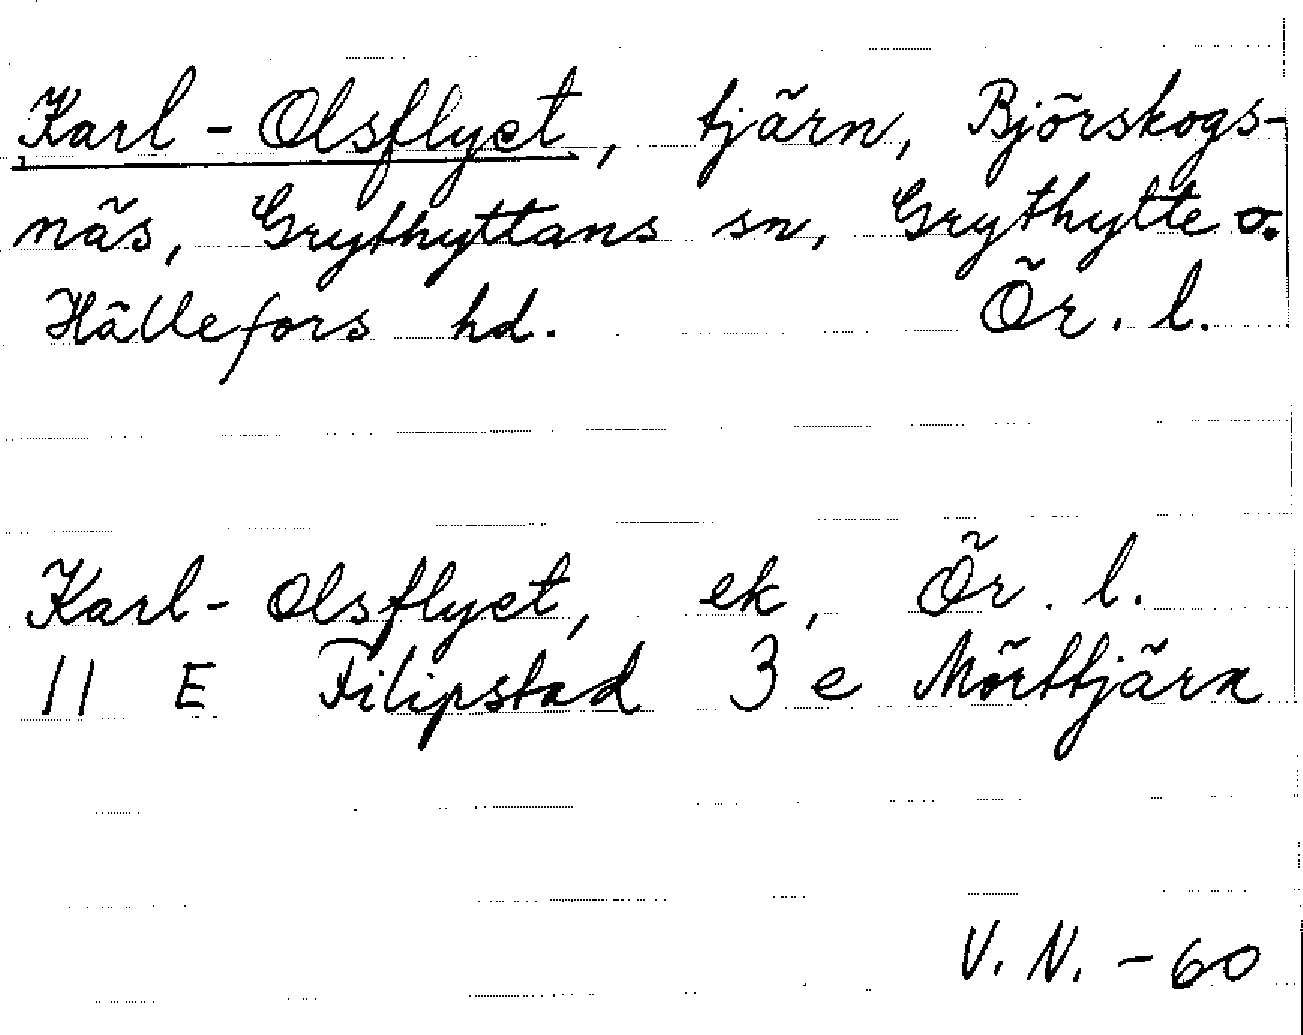 Karl-Olsflyet, tjärn, Björskogs-
näs, Grythyttans sn, Grythytte o.
Hällefors hd. Ör. l.
Karl-Olsflyet, ek, Ör. l.
11 E Filipstad 3 e Mörttjärn
V. N. -60